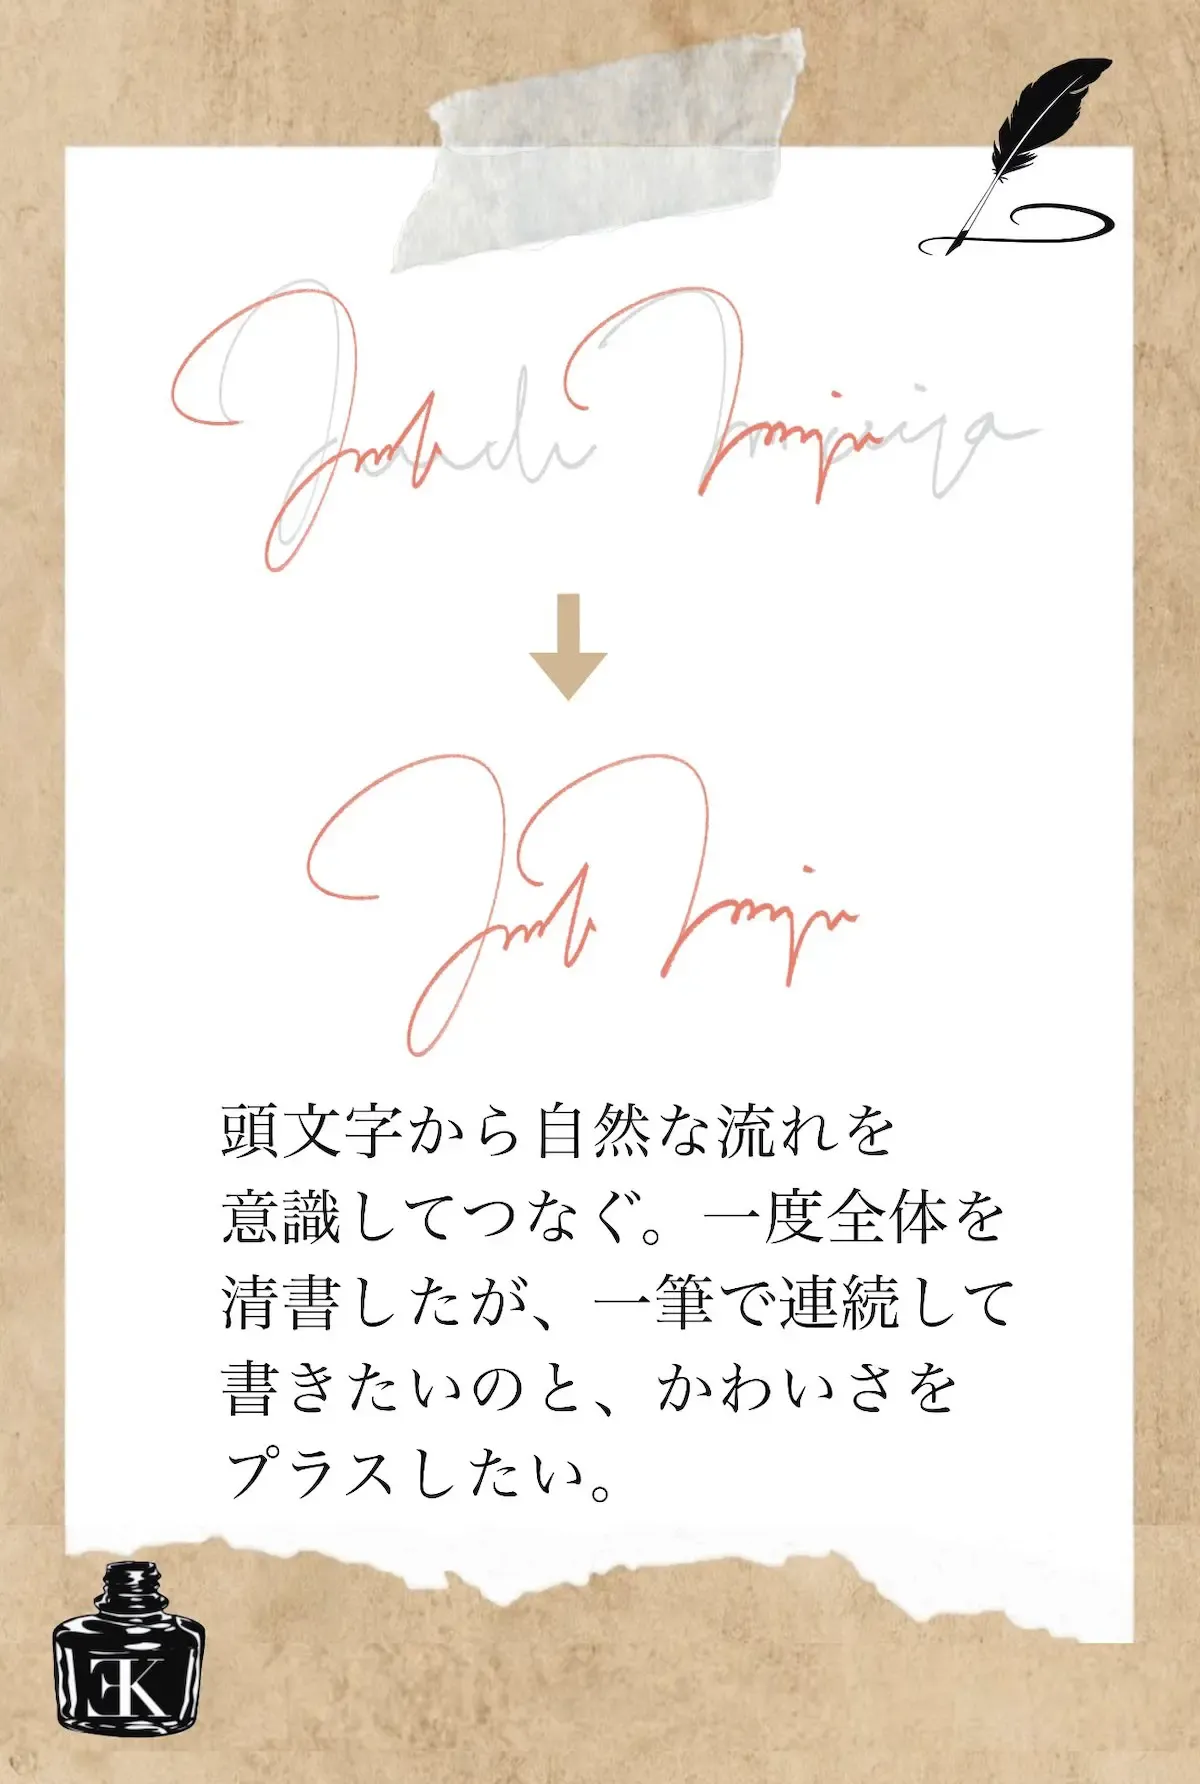 頭文字から自然な流れを
意識してつなぐ。一度全体を
清書したが、一筆で連続して
書きたいのと、かわいさを
プラスしたい。
EK